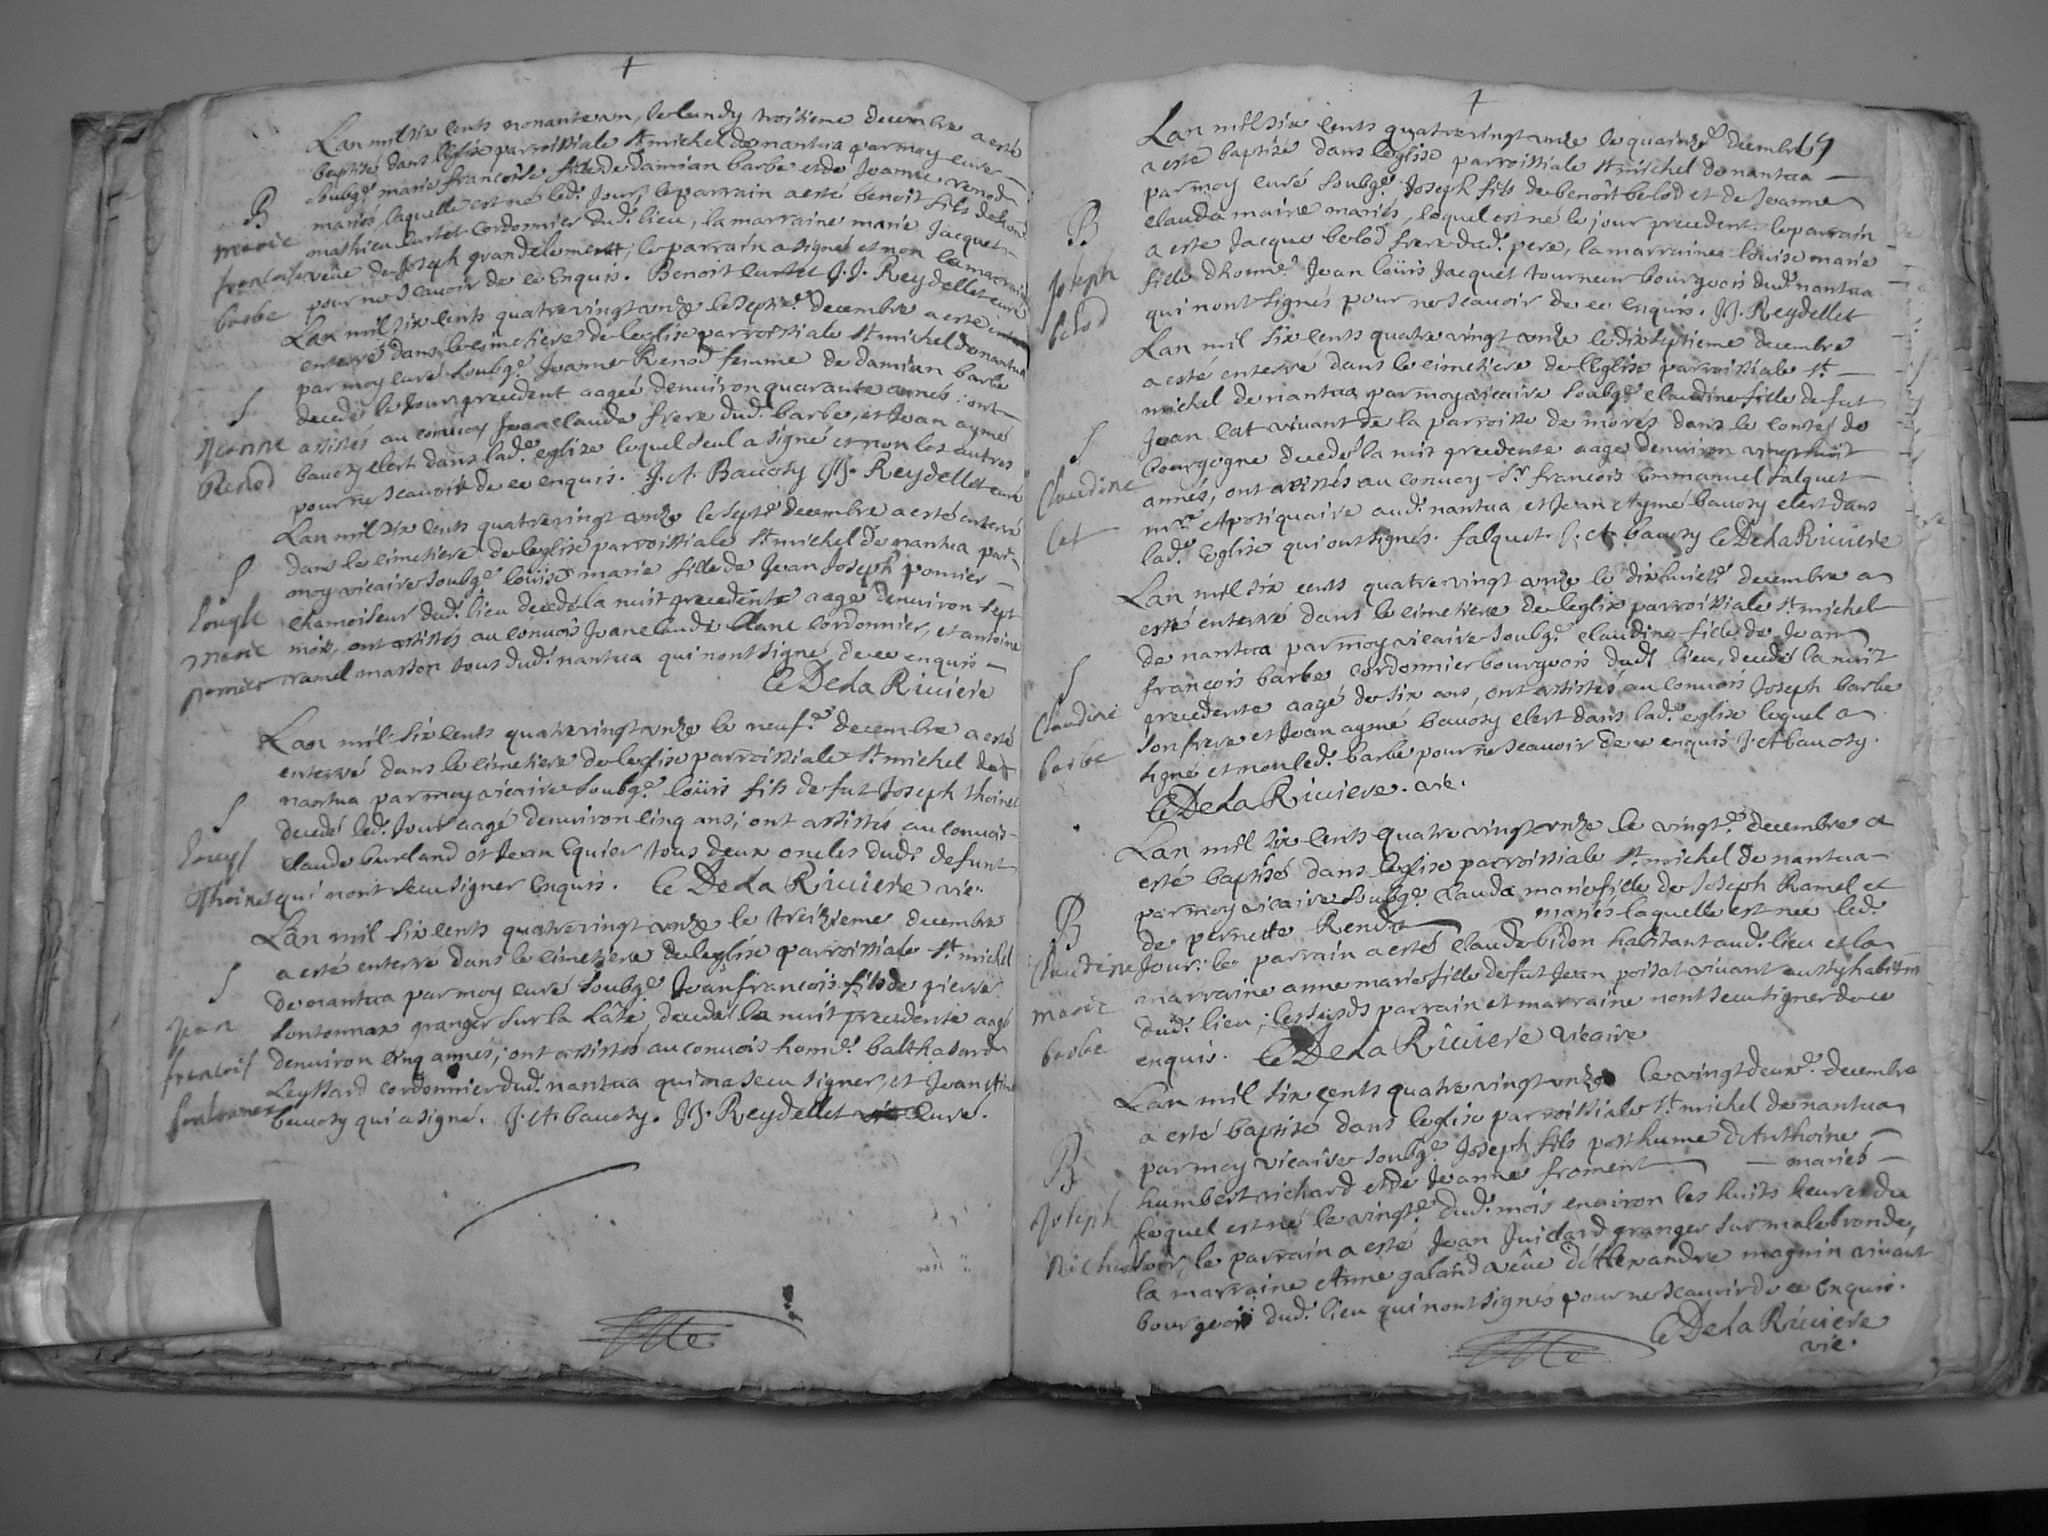 Lan mil six cents nonante un, le lundy troisieme decembre a esté
baptisé dans leglise parroissiale st michel de nantua par moy curé
soubzg.e marie francoise fille de damian barbe et de Jeanne renod
mariés, laquelle est né led. Jour, le parrain a esté benoit fils de hon.
mathieu curtet Cordonnier dud. lieu, la marraine marie Jacquet
vêue de Joseph grandclement, le parrain a signé et non la marraine
pour ne scavoir de ce Enquis. Benoit curtet J.J. Reydellet curé
B
marie
francoise
barbe
Lan mil six cents quatrevingt unze le sept.e decembre a esté
enterré dans le cimetiere de leglise parroissiale st michel de nantua
par moy curé soubzg.e Jeanne Renod femme de damian barbe
decedé le Jour precedent aageé denuiron quarante annés : ont
assistés au conuoy Jean claude frere dud. barbe, et Jean aymé
bauosy clert dans lad. eglise lequel seul a signé et non les autres
pour ne scauoir de ce enquis. J. A. Bauosy JJ. Reydellet curé
S
Jeanne
Renod
Lan mil six cents quatrevingt unze le sept.e decembre a esté enterré
dans le cimetiere de leglise parroissiale st michel de nantua par
moy vicaire soubzg.e louise marie fille de Jean Joseph pomier
chamoiseur dud. lieu decedé la nuit precedente aagé denuiron sept
mois, ont assistés au conuois Jean claude blanc cordonnier, et antoine
ramel masson tous dud. nantua qui nont signé de ce enquis
C De La Riuiere
S
Louyse
marie
pomier
Lan mil six cents quatrevingt unze le neuf.e decembre a esté
enterré dans le cimetiere de leglise parroissiale st michel de
nantua par moy vicaire soubzg.e loüis fils de fut Joseph thoinet
decedé led. Jour aagé denuiron cinq ans; ont assistés au conuois
claude burland et Jean Equier tous deux oncles dud. defunt
qui nont sceu signer Enquis. C De La Riuiere vic.
S
Louys
Thoinet
Lan mil six cents quatrevingt unze le treizieme decembre
a esté enterré dans le cimetiere de leglise parroissiale st michel
de nantua par moy curé soubzg.e Jean francois fils de pierre
sontonnax granger sur la Late, decedé la nuit precedente aagé
denuiron cinq annés; ont assistés au conuois hom.e balthasard
Leyssard cordonnier dud. nantua qui na sceu signer, et Jean Aimé
bauosy qui a signé. J. A. bauosy. JJ. Reydellet curé.
S
Jean
francois
sontonnax
Lan mil six cents quatrevingt unze le quainze decembre
a esté baptisé dans leglise parroissiale st michel de nantua
par moy curé soubzg.e Joseph fils de benoit belod et de Jeanne
clauda maire mariés, lequel est né le jour precedent. le parrain
a esté Jacque belod frere dud. pere, la marraine louise marie
fille dhonn.e Jean loüis Jacquet tourneur bourgeois dud. nantua
qui nont signés pour ne scauoir de ce enquis. JJ. Reydellet
B
Joseph
belod
Lan mil six cents quatre vingt unze le dix septieme decembre
a esté enterré dans le cimetiere de lEglise parroissiale st
michel de nantua par moy vicaire soubzg.e claudine fille de fut
Jean Cat vivant de la parroisse de morés dans le conté de
bourgogne decedé la nuit precedente aagé denuiron vingt huit
annés, ont assistés au conuoy Sr francois Emmanuel falquet
m.re Apotiquaire aud. nantua, et Jean Aymé bauosy clert dans
lad. Eglise qui ont signés. falquet. J. A. bauosy C De La Riuiere
S
Claudine
Cat
Lan mil six cents quatrevingt unze le dixhuict.e decembre a
esté enterré dans le cimetiere de leglise parroissiale st michel
de nantua par moy vicaire soubzg.e claudine fille de Jean
françois barbe cordonnier bourgeois dud. lieu, decedé la nuit
precedente aagé de six ans, ont assistés au conuois Joseph barbe
son frere et Jean aymé bauosy clert dans lad. eglise lequel a
signé et non led. barbe pour ne scauoir de ce enquis J. A bauosy.
C De La Riuiere. vic.
S
Claudine
barbe
Lan mil six cents quatre vingt unze le vingt.e decembre a
esté baptisé dans leglise parroissiale st michel de nantua
par moy vicaire soubzg.e clauda marie fille de Joseph Ramel et
de pernette Rendu mariés laquelle est née led.
Jour: le parrain a esté claude bidon habitant aud. lieu et la
marraine anne marie fille de fut Jean poisat vivant aussy habitant
dud. lieu; lesdsusds parrain et marraine nont sceu signer de ce
enquis. C De La Riuiere vicaire
B
Claudine
marie
barbe
Lan mil six cents quatre vingt unze le vingt deux.e decembre
a esté baptisé dans leglise parroissiale st michel de nantua
par moy vicaire soubzg.e Joseph fils posthume dAnthoine
humbert richard et de Jeanne froment mariés
lequel est né le vingt.e dud. mois enuiron les huits heures du
soir, le parrain a esté Jean Juilard granger sur malebronde,
la marraine Anne galand vêue dAllexandre magnin vivant
bourgeois dud. lieu qui nont signés pour ne scauoir de ce Enquis.
C De La Riuiere
vic.
B
Joseph
Richard